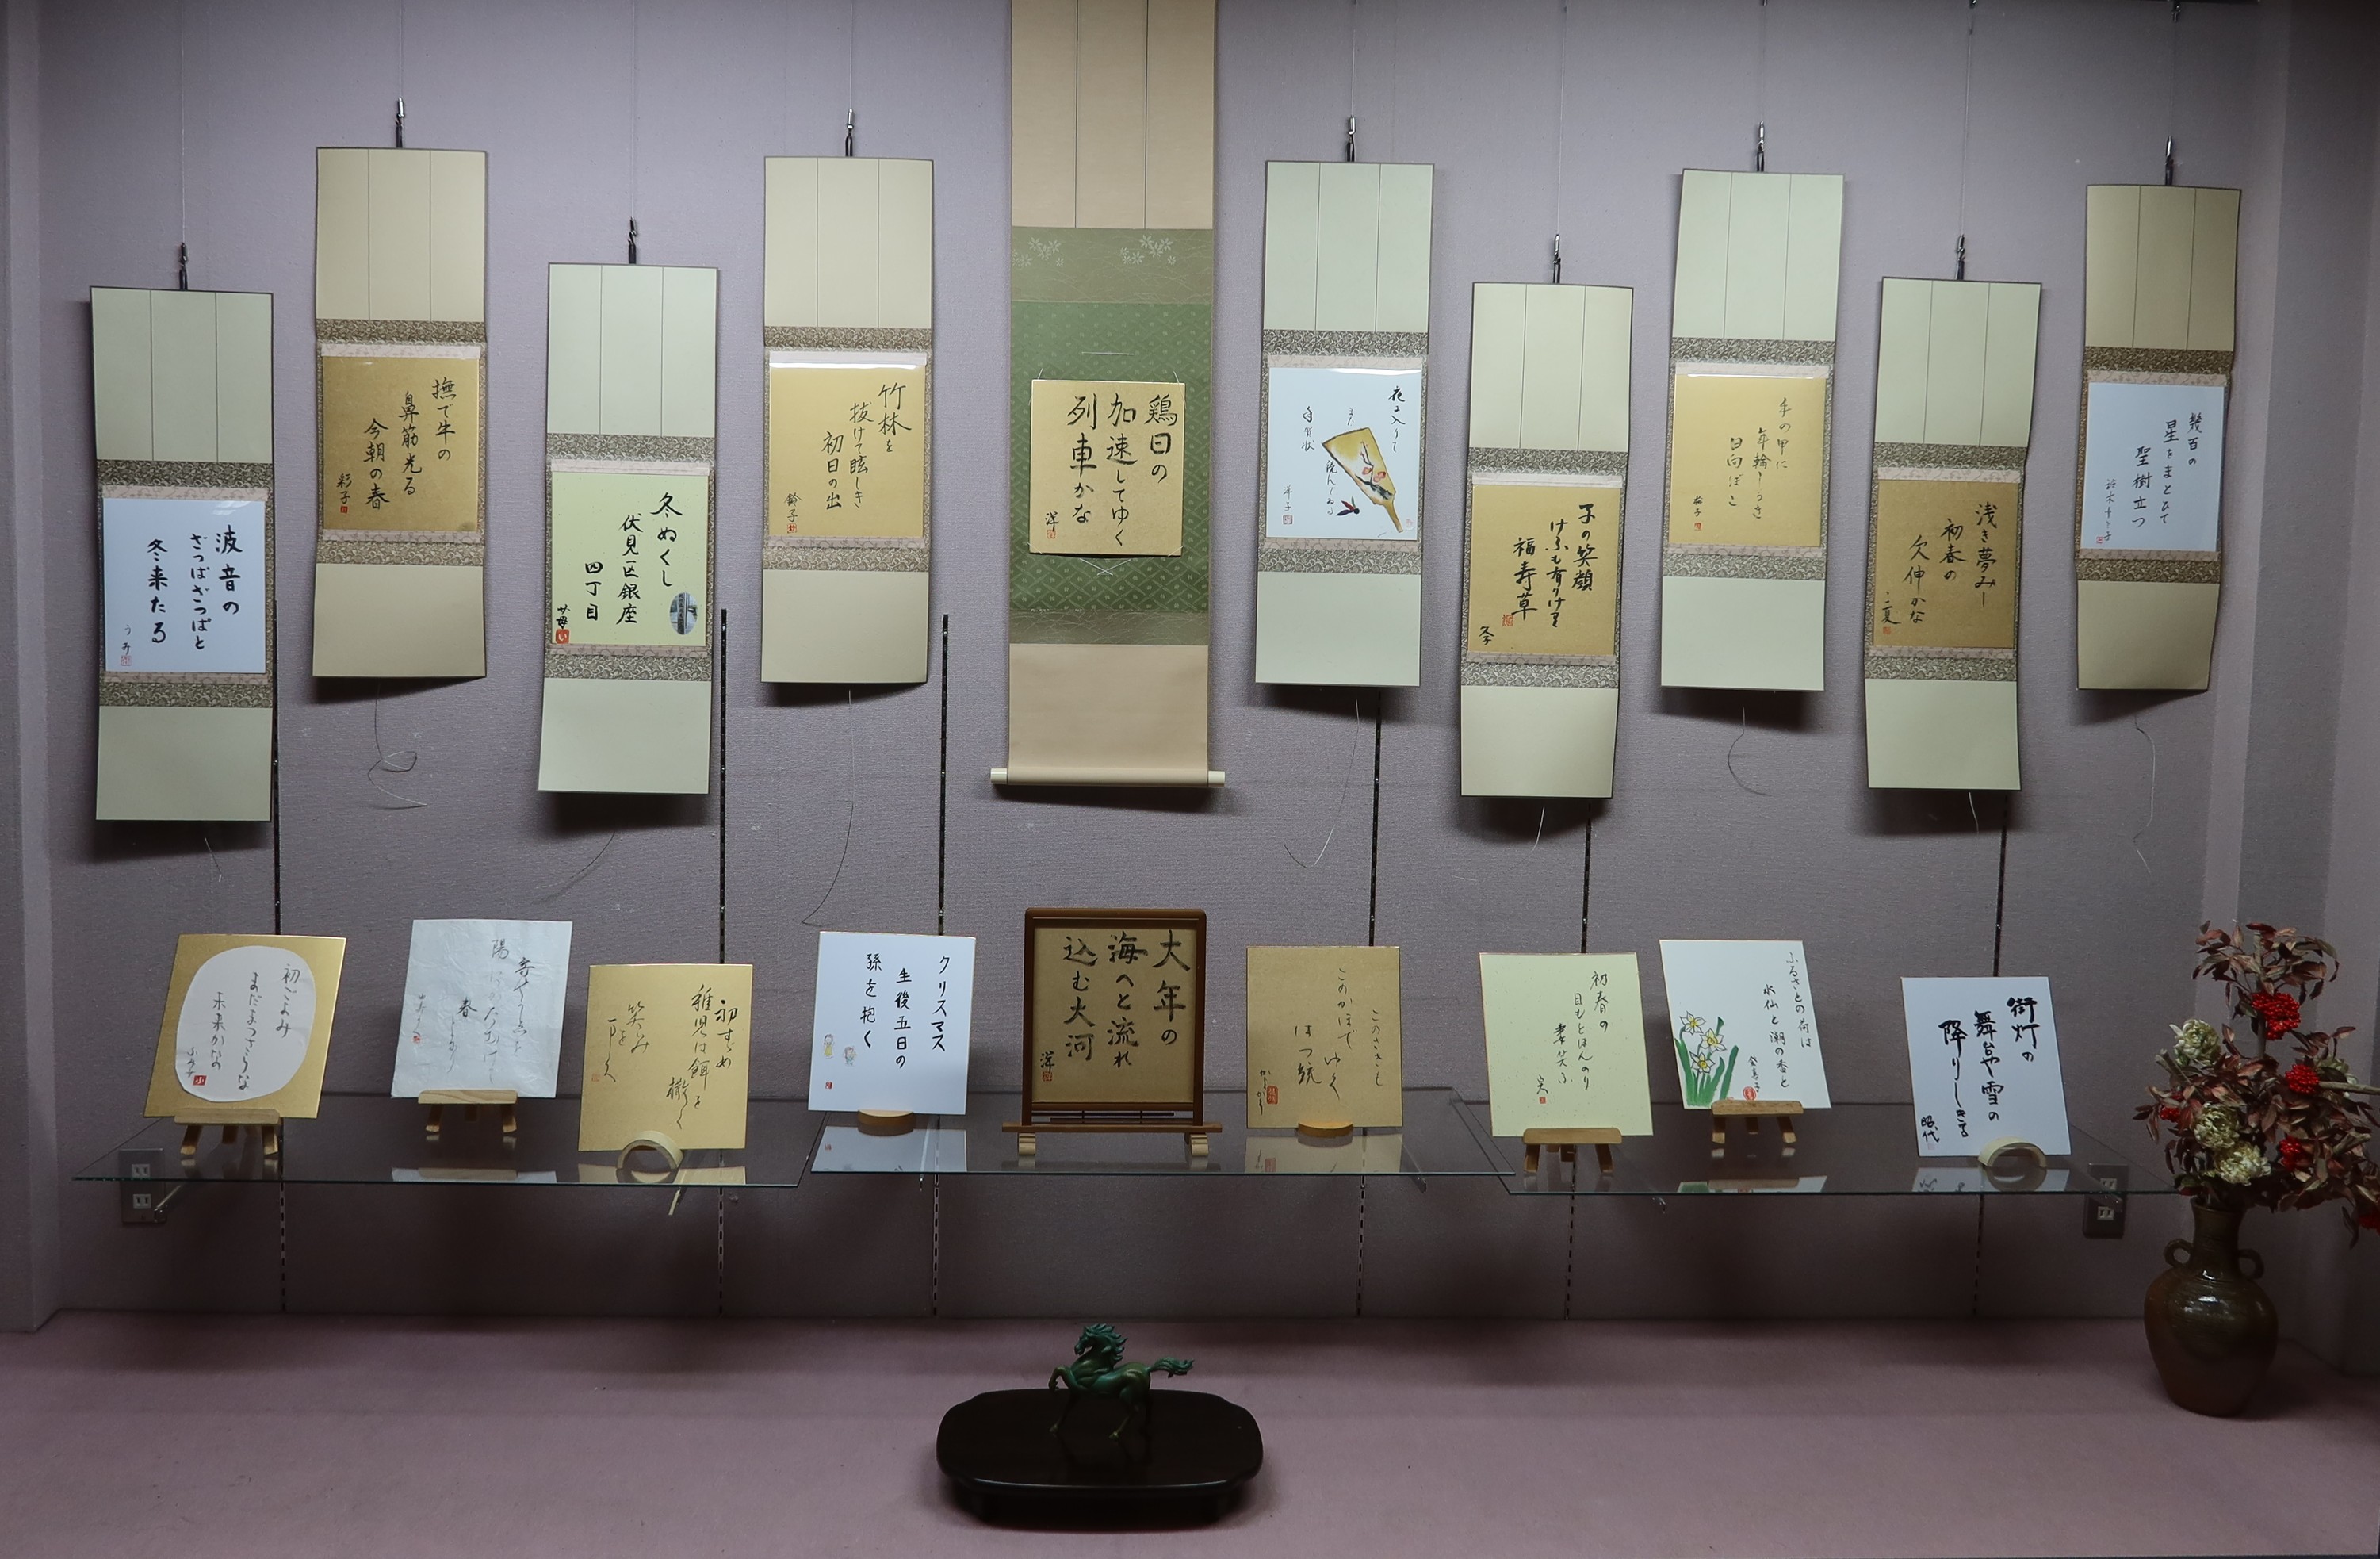 波音の
ざつぱざつぱと
冬来たる
うみ
撫で牛の
鼻筋光る
今朝の春
彩子
冬ぬくし
伏見区銀座
四丁目
竹林を
抜けて眩しき
初日の出
鈴子
鶏日の
加速してゆく
列車かな
洋
夜に入りて
年賀状
子の笑顔
けふも有りけり
福寿草
手の甲に
日向ぼこ
浅き夢みし
初春の
欠伸かな
幾百の
星をまとひて
聖樹立つ
初ごよみ
まだまつさらな
未来かな
春
初すゞめ
稚児は餌を
撒く
笑み
クリスマス
生後五日の
孫を抱く
大年の
海へと流れ
込む大河
洋
このさきも
このかほで ゆく
はつ鏡
初春の
目もとほんのり
ふるさとの荷は
水仙と潮の香と
街灯の
舞台や雪の
降りしきる
昭代